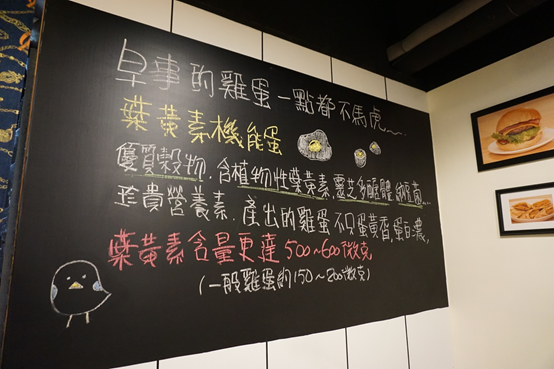 早事的雞蛋一點都不馬虎……
葉黃素機能蛋
優質穀物.含植物性葉黃素,靈芝多醣體.納豆菌…
珍貴營養素.產出的雞蛋不只蛋黃香,蛋白濃,
葉黃素含量更達500~600微克
(一般雞蛋約150~200微克)